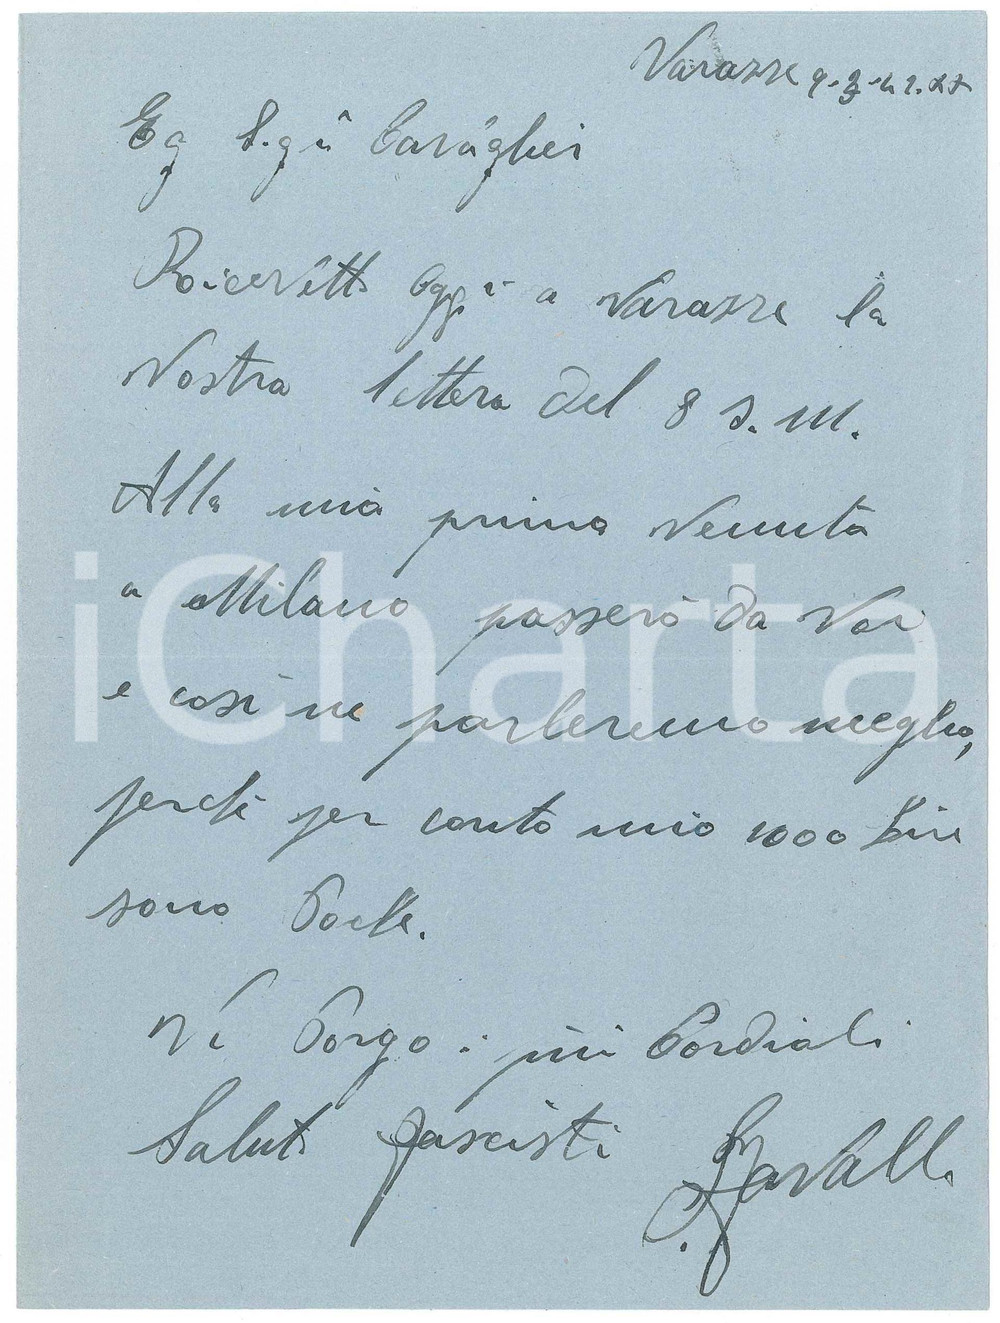 Varazze 9-3-42.XX
Eg S.gr Caraglei
Ricevetti Oggi a Varazze la
Vostra lettera del 8 s. M.
Alla mia prima Venuta
a Milano passerò da Voi
e così ne parleremo meglio,
perchè per conto mio 1000 Lire
sono Poche.
Vi Porgo i più Cordiali
Saluti fascisti
iCharta